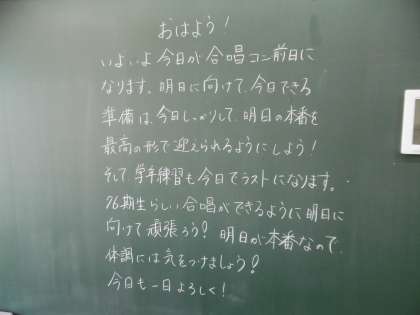 おはよう!
いよいよ今日が合唱コン前日に
なります。明日に向けて、今日できる
準備は、今日しっかりして、明日の本番を
最高の形で迎えられるようにしよう!
そして、学年練習も今日でラストになります。
76期生らしい合唱ができるように明日に
向けて頑張ろう? 明日が本番なので、
体調には気をつけましょう?
今日も一日よろしく!